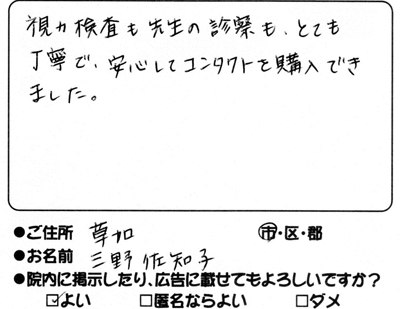 視力検査も先生の診察も、とても
丁寧で、安心してコンタクトを購入でき
ました。
●ご住所 草加 市・区・郡
●お名前 三野佐知子
●院内に掲示したり、広告に載せてもよろしいですか?
☑よい □匿名ならよい □ダメ